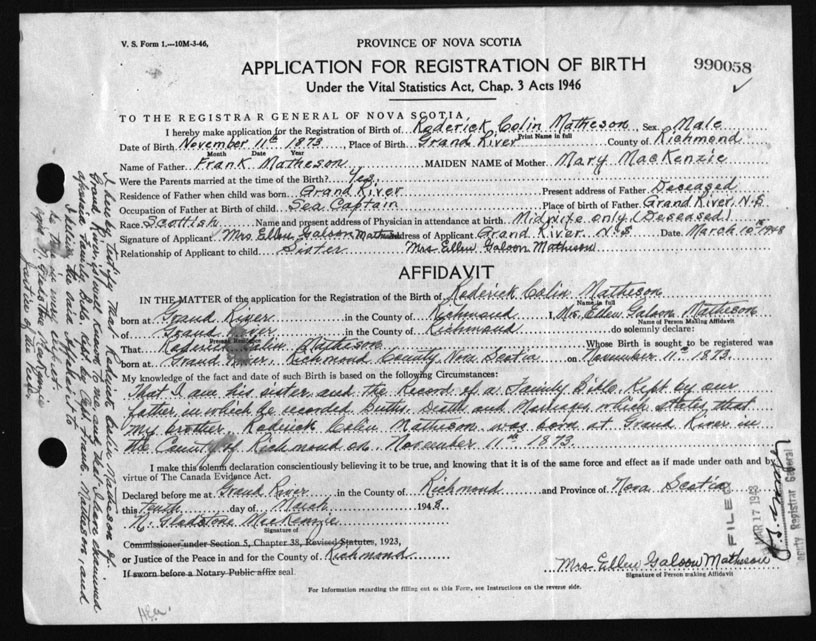 V. S. Form 1.—10M-3-46,
PROVINCE OF NOVA SCOTIA
APPLICATION FOR REGISTRATION OF BIRTH
990058
Under the Vital Statistics Act, Chap. 3 Acts 1946
TO THE REGISTRAR GENERAL OF NOVA SCOTIA,
I hereby make application for the Registration of Birth of Roderick Colin Matheson, Sex Male
Print Name in full
Date of Birth November 11th 1873, Place of Birth Grand River County of Richmond
Month Date Year
Name of Father Frank Matheson MAIDEN NAME of Mother Mary MacKenzie
Were the Parents married at the time of the Birth? Yes.
Residence of Father when child was born Grand River Present address of Father Deceased
Occupation of Father at Birth of child Sea Captain Place of Birth of Father Grand River, N.S
Race Scottish Name and present address of Physician in attendance at birth Midwife only (Deceased)
Signature of Applicant Mrs Ellen Galoon Matheson Address of Applicant Grand River N.S Date March 10th 1948
Relationship of Applicant to child Sister Mrs Ellen Galoon Matheson
AFFIDAVIT
IN THE MATTER of the application for the Registration of Birth of Roderick Colin Matheson
Name in full
born at Grand River in the County of Richmond I, Mrs. Ellen Galoon Matheson
Name of Person Making Affidavit
of Grand River in the County of Richmond do solemnly declare:
Present Residence
That Roderick Colin Matheson Whose Birth is sought to be registered was
born at Grand River, Richmond County Nova Scotia on November 11th 1873.
My knowledge of the fact and date of such Birth is based on the following Circumstances:
That I am his sister and the Record of a Family Bible, Kept by our
father in which he recorded Births, Death and Marriages which states that
my brother, Roderick Colin Matheson was born at Grand River in
the County of Richmond on November 11th 1873.
I make this solemn declaration conscientiously believing it to be true, and knowing that it is of the same force and effect as if made under oath and by
virtue of The Canada Evidence Act.
Declared before me at Grand River in the County of Richmond and Province of Nova Scotia
this tenth day of March 1948
N. Gladstone MacKenzie
Signature of
Commissioner under Section 5, Chapter 38, Revised Statutes, 1923,
or Justice of the Peace in and for the County of Richmond
If sworn before a Notary Public affix seal.
Mrs Ellen Galoon Matheson
Signature of Person making Affidavit
For Information regarding the filling out of this Form, see Instructions on the reverse side.
I hereby certify that Roderick Colin Matheson of
Grand River, is well known to me and that I have examined
Family Bible, kept by Capt. Frank Matheson, and
I believe the said Affidavit to
be true in every respect
N. Gladstone MacKenzie
Justice of the Peace
FILED
MAR 17 1948
Deputy Registrar General